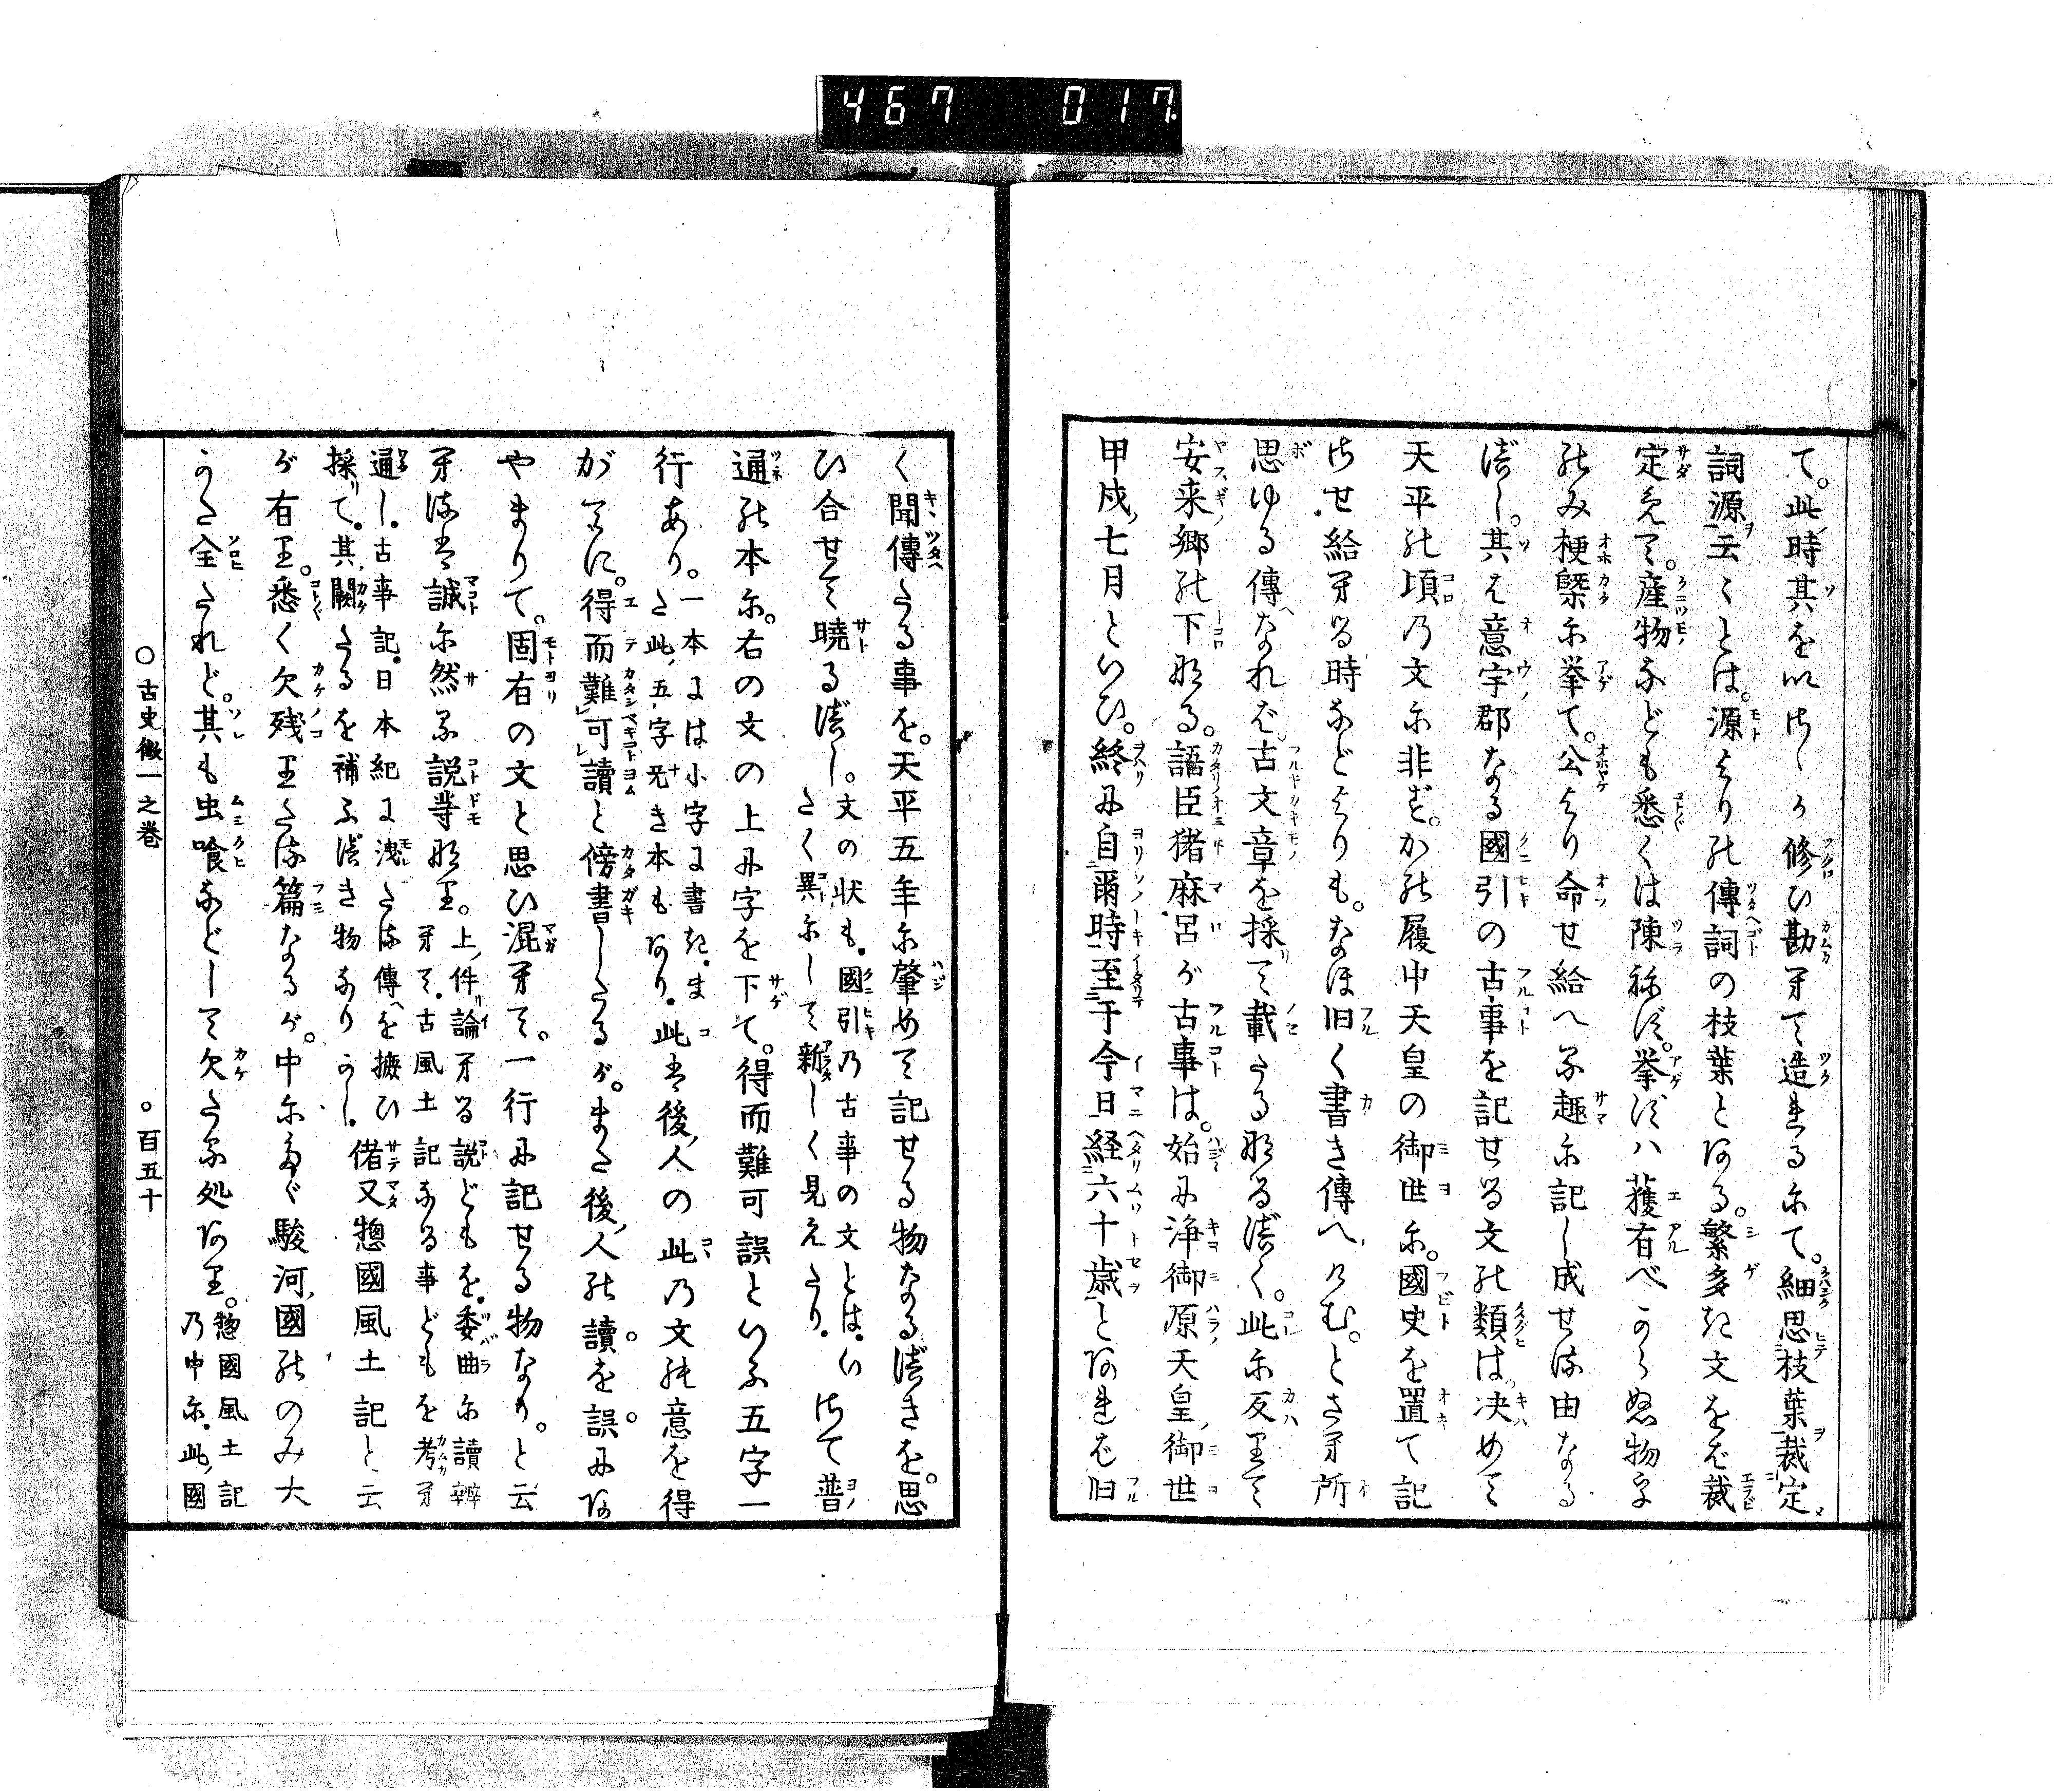 467 017
て。此時其を以はしく修ひ勘へて造れるにて。細思枝葉裁定
詞源云々とは。源よりの傳詞の枝葉とある。繁多き文をば裁
定えて。産物などをも悉くは陳ねず。挙ずハ獲有べからぬ物
のみ梗槩に挙て。公より命せ給へる趣に記し成せる由なる
べし。其は意宇郡なる國引の古事を記せる文の類は决めて
天平の頃の文に非ず。かの履中天皇の御世に。國史を置て記
させ給へる時などよりも。なほ旧く書き傳へけむ。とさへ所
思ゆる傳なれば古文章を採て載たるなるべく。此に反りて
安来郷の下なる。語臣猪麻呂が古事は。始に浄御原天皇御世
甲戌七月といひ。終に自爾時至于今日経六十歳とあれば旧
く聞傳たる事を。天平五年に肇めて記せる物なるべきを。思
ひ合せて曉るべし。文の状も。國引乃古事の文とは。い
たく異にして新しく見えたり。さて普
通の本に。右の文の上に字を下て。得而難可誤といふ五字一
行あり。一本には小字に書き。ま
た此五字无き本もあり。此は後人の此の文の意を得
がてに。得而難可讀と傍書したるが。また後人の讀を誤にあ
やまりて。固有の文と思ひ混へて。一行に記せる物なり。と云
へるは誠に然る説等なり。上件論へる説どもを。委曲に讀辨
へて。古風土記なる事どもを考へ
通し。古事記。日本紀に洩たる傳を摭ひ
採て。其闕たるを補ふべき物なりかし。偖又惣國風土記と云
が有り。悉く欠残りたる篇なるが。中にたゞ駿河國のみ大
かた全たれど。其も虫喰などして欠たる処あり。惣國風土記
乃中に。此國
○古史徴一之巻
○百五十